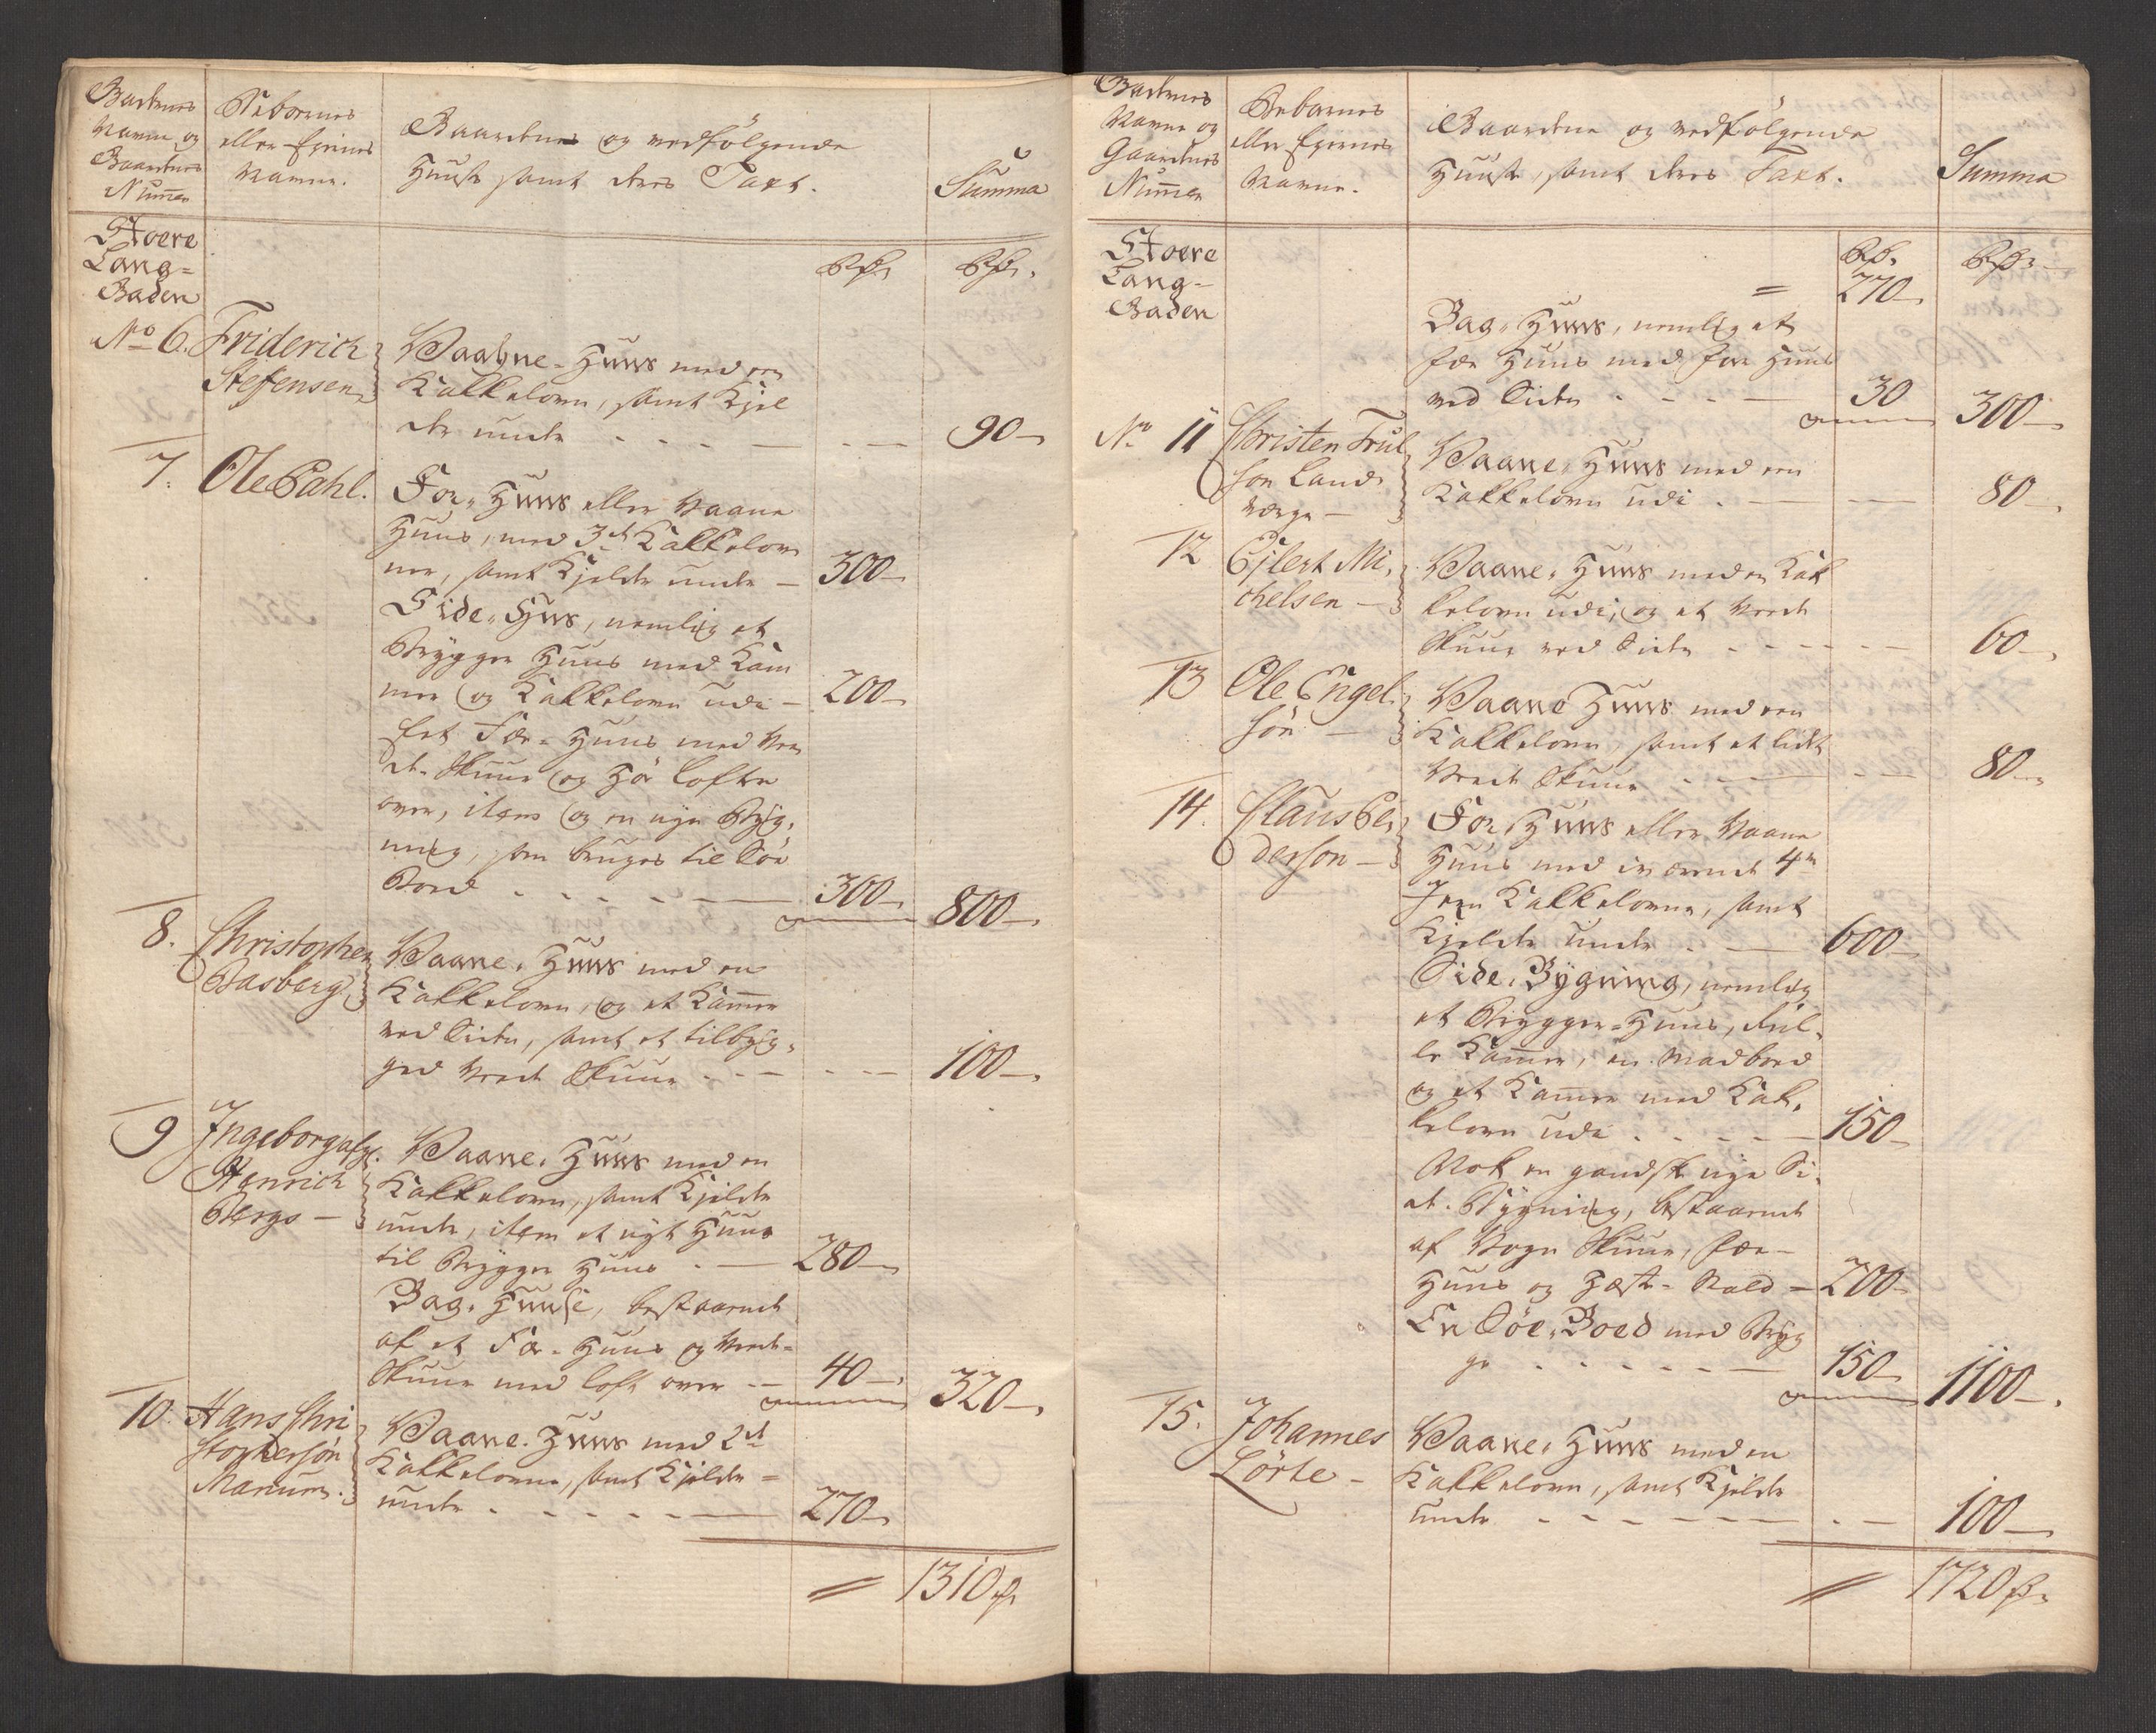 Gadernes
Navne og
Gaardenes
Numer
Beboernes
eller Ejernes
Navne.
Gaardene og medfølgende
Huuse samt deres Taxt.
Summa
Stoere
Lang=
Gaden
Rdr.
Rdr.
No 6. Friderich
Stefensen
Vaane-Huus med en
Kakkelovn, samt Kjel
der under - - - -
90-
7. Ole Pahl.
For-Huus eller Vaane
Huus, med 3de Kakkelov
ner, samt Kjelder under - 300-
Side-Huus, nemlig et
Brygger Huus med Kam
mer og Kakkelovn udi - 200-
Et Fæe-Huus med Ve
de-Skuur og Høe Lofter
over, item og en nye Byg,
ning, som bruges til Søe
Boed - - - - - 300- 800-
8. Christopher
Basberg
Vaane-Huus med en
Kakkelovn, og et Kammer
ved Siden, samt et tilbyg,
ged Vede Skuur - - - - 100-
9 Ingeborg afg.
Henrich
Bergs -
Vaane-Huus med en
Kakkelovn, samt Kjelder
under, item et nyt Huus
til Brygger Huus - 280-
Bag-Huuse, bestaaende
af et Fæe-Huus og Vede-
Skuur med Loft over - 40- 320-
10. Hans Chri
stophersøn
Manum.
Vaane-Huus med 2de
Kakkelovne, samt Kjelder =
under - - - - - 270-
= 1310 rdr
Gadernes
Navne og
Gaardenes
Numer
Beboernes
eller Ejernes
Navne.
Gaardene og medfølgende
Huuse, samt deres Taxt.
Summa
Stoere
Lang-
Gaden
Rdr.
Rdr.
= 270-
Bag-Huus, nemlig et
Fæe Huus med For Huus
ved Siden - - - - 30 300-
No 11 Christen Trul
son Land
værge -
Vaane-Huus med en
Kakkelovn udi - - 80-
12 Ejlert Mi,
chelsen -
Vaane-Huus med en Kak
kelovn udi, og et Vede
Skuur ved Siden - - - - - 60-
13 Ole Engel
søn -
Vaane Huus med en
Kakkelovn, samt et lidet
Vede Skuur - - - - 80-
14. Claus Pe,
derson -
For-Huus eller Vaane
Huus med iværende 4re
Jern Kakkelovne, samt
Kjelder under - - 600-
Side-Bygning, nemlig
et Brygger-Huus, Rul-
le Kammer, en Madboed
og et Kammer med Kak,
kelovn udi - - - - 150-
Nok en gandske nye Si-
de-Bygning, bestaaende
af Vogn Skuur, Fæe-
Huus og Hæste-Stald - 200-
En Søe-Boed med Bryg
ge - - - - - 150- 1100-.
15. Johannes
Lørte -
Vaane-Huus med en
Kakkelovn, samt Kjelder
under - - - - - - 100-
= 1720 rdr